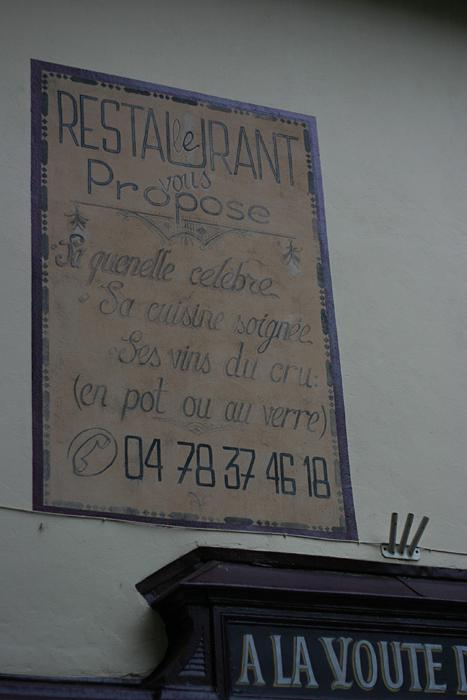 le
RESTAURANT
vous
Propose
Sa quenelle celebre
Sa cuisine soignée
Ses vins du cru:
(en pot ou au verre)
04 78 37 46 18
A LA VOUTE